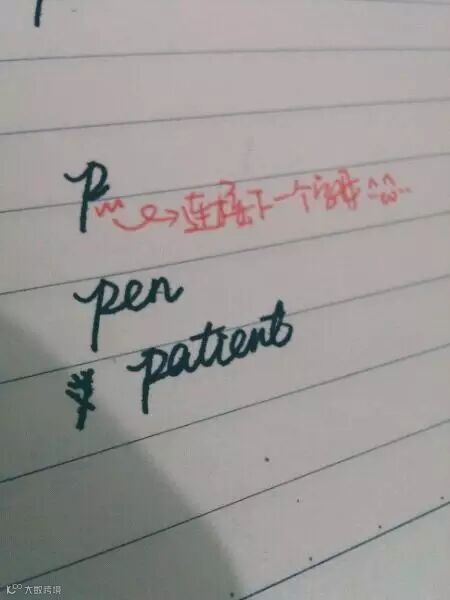 p
连接下一个字母 ^ω^..
pen
patient
大数跨境